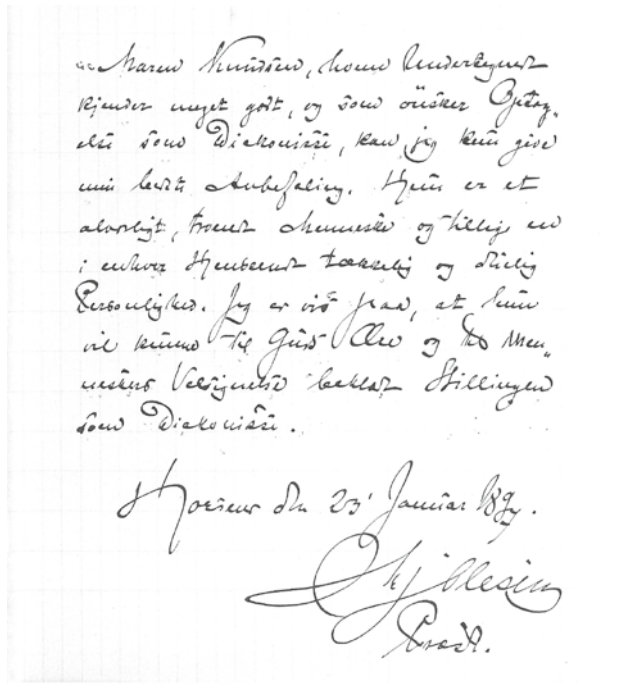 Maren Knudsen, hvem Undertegnede
kjender meget godt, og som ønsker Optag„
else som Diakonisse, kan jeg kun give
min bedste Anbefaling. Hun er et
alvorligt, troende Menneske og tillige en
i enhver Henseende tækkelig og dūelig
Personlighed. Jeg er vis paa, at hun
vil kunne til Guds Ære og til Men„
neskers Velsignelse beklæde Stillingen
som Diakonisse.
den 23' Januar 1897.
Provst.